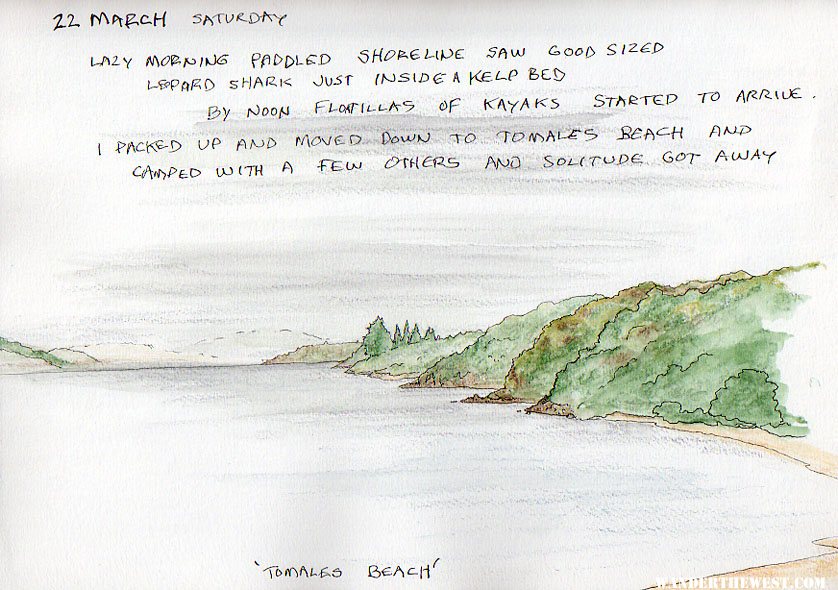 22 MARCH SATURDAY
LAZY MORNING PADDLED SHORELINE SAW GOOD SIZED
LEOPARD SHARK JUST INSIDE A KELP BED
BY NOON FLOTILLAS OF KAYAKS STARTED TO ARRIVE.
I PACKED UP AND MOVED DOWN TO TOMALES BEACH AND
CAMPED WITH A FEW OTHERS AND SOLITUDE GOT AWAY
'TOMALES BEACH'
WANDERTHEWEST.COM